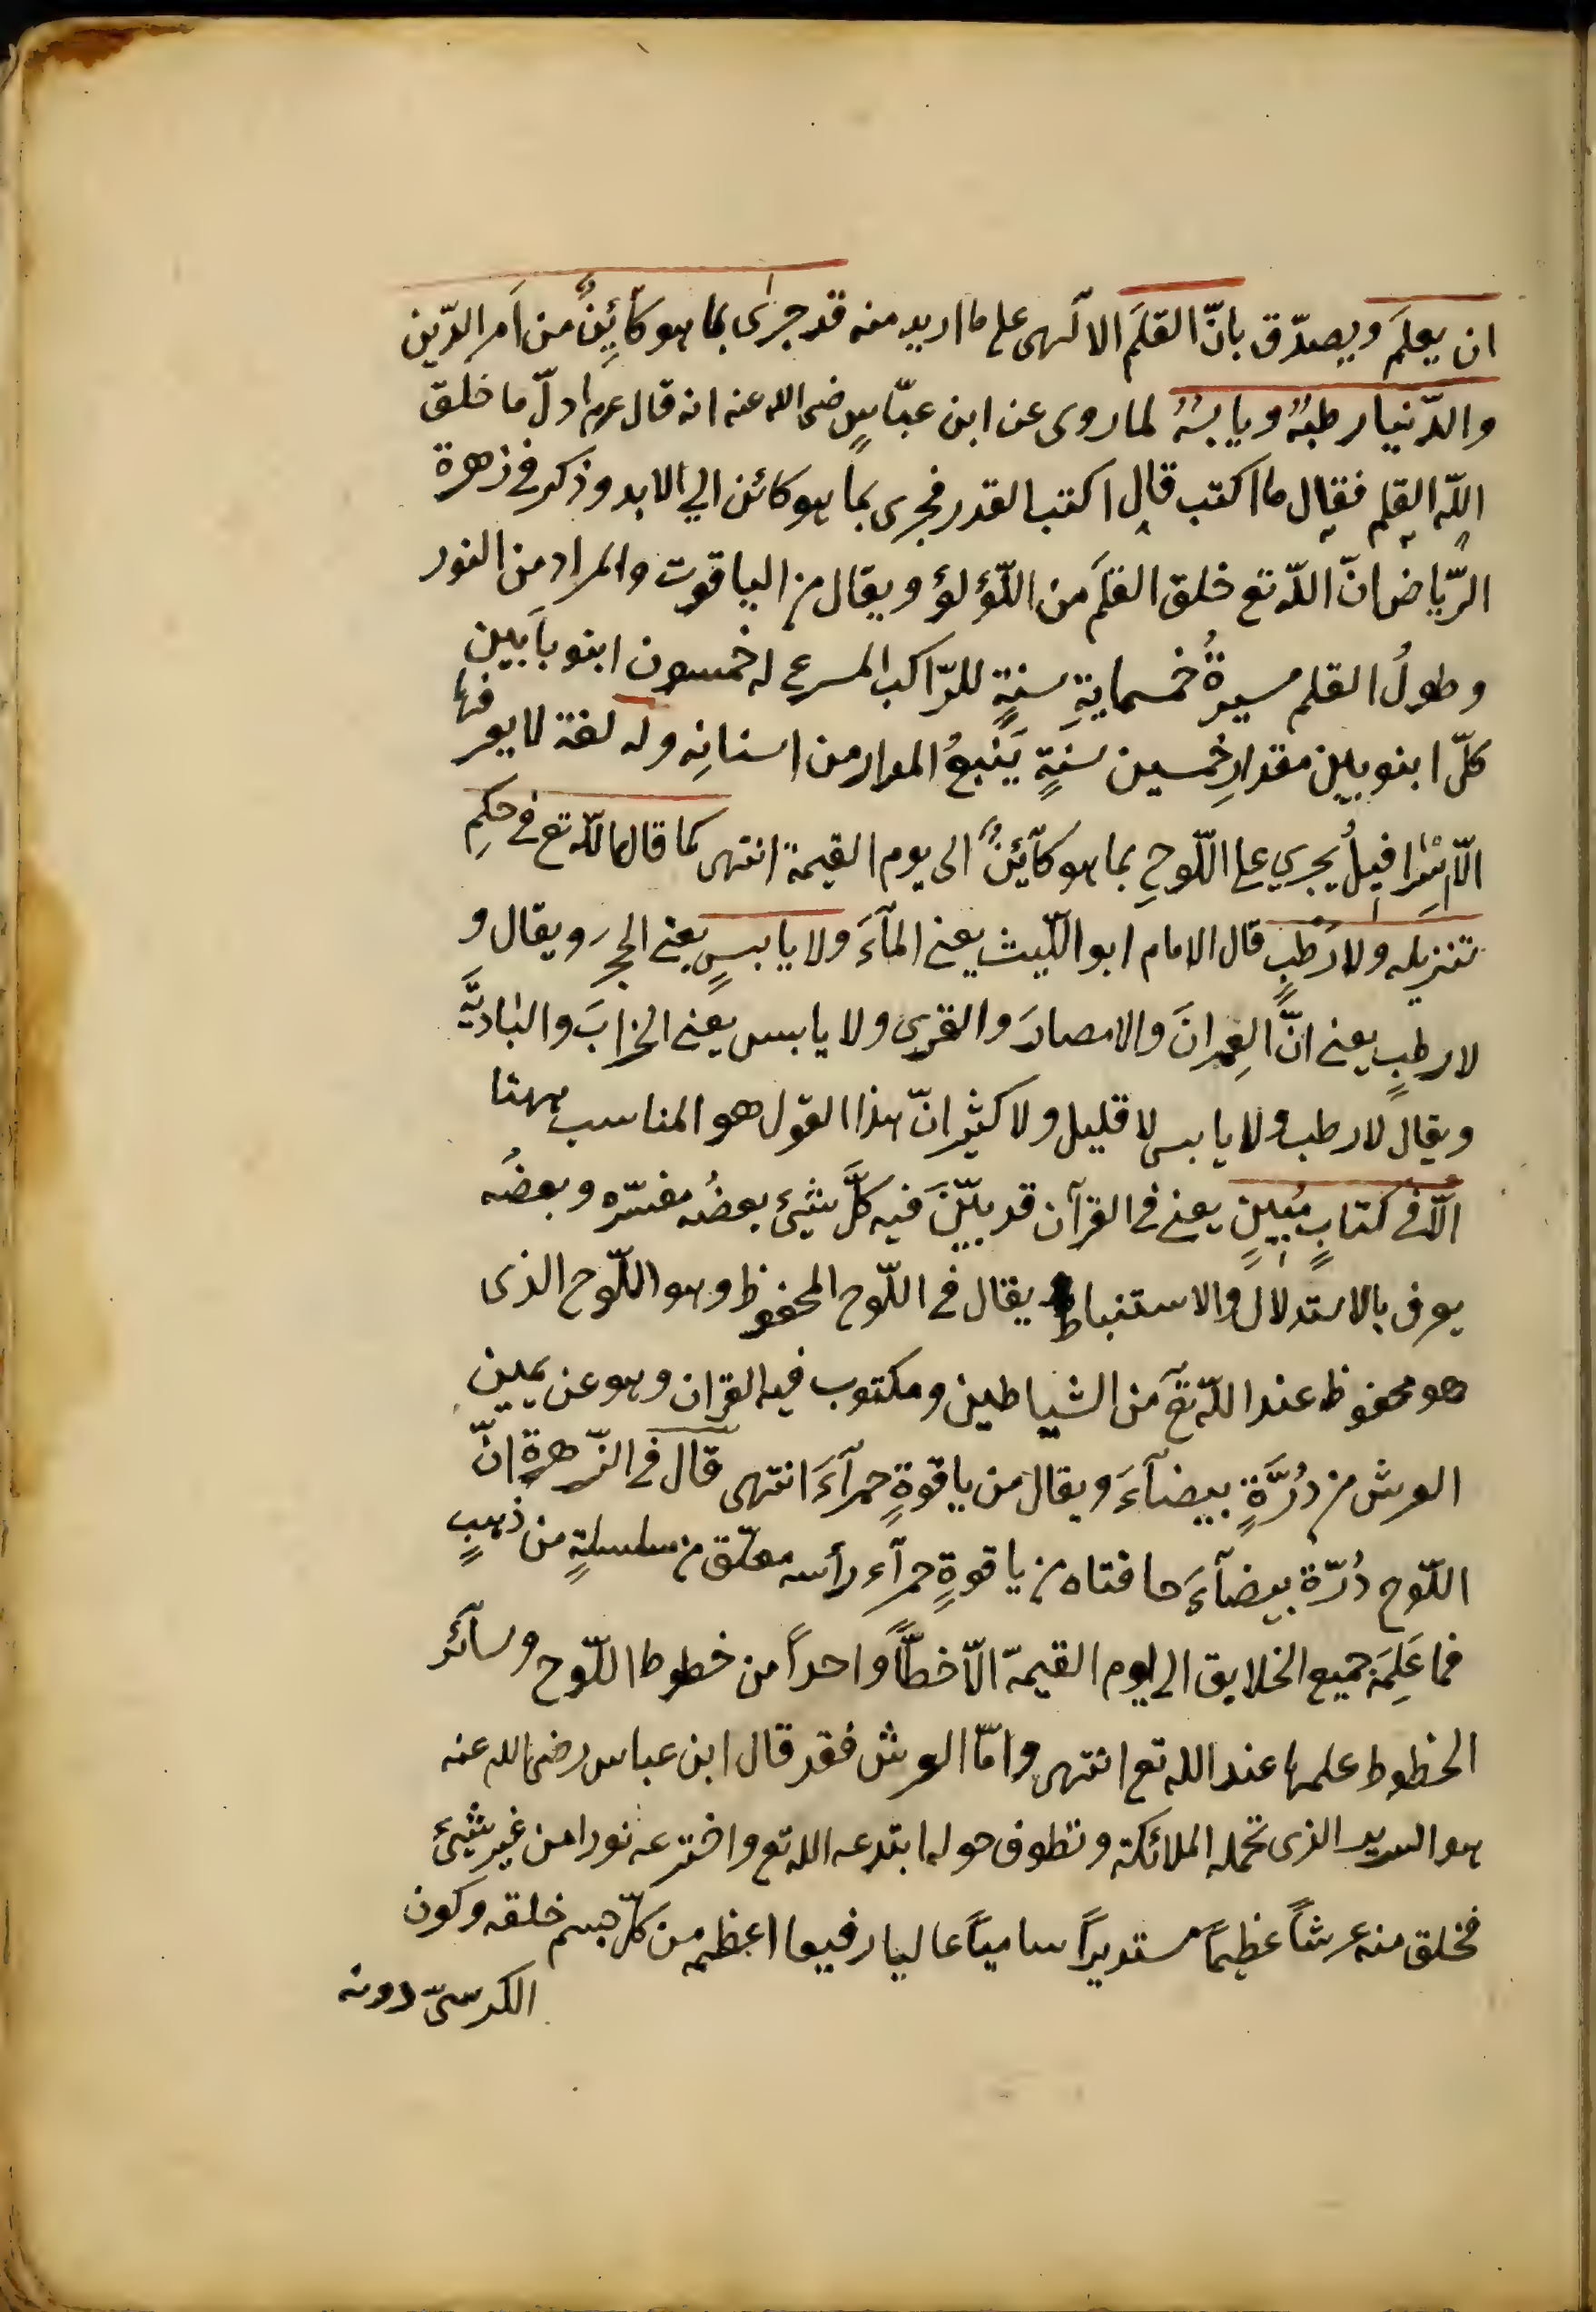 ان يعلمَ ويصدّق بانّ القلمَ الالٓهى على ما اريد منه قد جرٰى بما هو كآئنٌ من اَمر الدّين
والدّنيا رطبهُ ويابسهُ لما روى عن ابن عبّاسٍ رضى الله عنه انه قال عم اول ما خلق
اللّه القلم فقال ما اكتب قال اكتب القدر فجرى بما هو كائن الي الابد وذكر فى زهرة
الرّياض انّ اللّه تع خلق القلمَ من اللّؤلؤ ويقال من الياقوت والمراد من النور
وطولُ القلم مسيرةُ خمسمايةِ سنةٍ للرّاكب المسرع له خمسون ابنوبا بين
كلّ ابنوبين مقدارِ خمسين سنةٍ يَنبعُ المداد من اسنانِه وله لغة لا يعرفها
الّا اِسْرافيلُ يجري على اللّوحِ بما هو كآئنٌ الى يوم القيمة انتهى كما قال اللّه تع فى حكمِ
تنزيله ولا رَطْبٍ قال الامام ابو اللّيث يعنى المآءَ ولا يابسٍ يعنى الحجر ويقال و
لا رطبٍ يعنى انّ العِمرانَ والامصارَ والقرى ولا يابس يعنى الخرابَ والباديَّة
ويقال لا رطب ولا يابس لا قليل ولا كثير انّ هذا القول هو المناسب ههنا
الّا فى كتابٍ مُبينٍ يعنى فى القرآن قد بيّنَ فيه كلَّ شيئ بعضُه مفسّره وبعضُه
يعرف بالاستدلال والاستنباط يقال فى اللّوح المحفوظ وهو اللّوح الذى
هو محفوظ عند اللّه تعٓ من الشياطين ومكتوب فيه القران وهو عن يمين
العرش من دُرَّةٍ بيضآءَ ويقال من ياقوةٍ حمرآءَ انتهى قال فى الزّهرة انّ
اللّوح دُرّة بيضآءَ حافتاه من ياقوةٍ حمرآء رأسه معلّق من سلسلةٍ من ذهبٍ
فما عَلِمَه جميع الخلايق الى يوم القيمة الّا خطًّا واحداً من خطوط اللّوح وسآئر
الخطوط علمها عند الله تع انتهى وامّا العرش فقد قال ابن عباس رضى الله عنه
هو السرير الذى تحمله الملائكة وتطوف حوله ابتدعه الله تع واخترعه نورا من غير شيئ
فخلق منه عرشاً عظيمًا مستديراً سامياً عاليا رفيعا اعظم من كلّ جسم خلقه وكون
الكرسىّ دونه